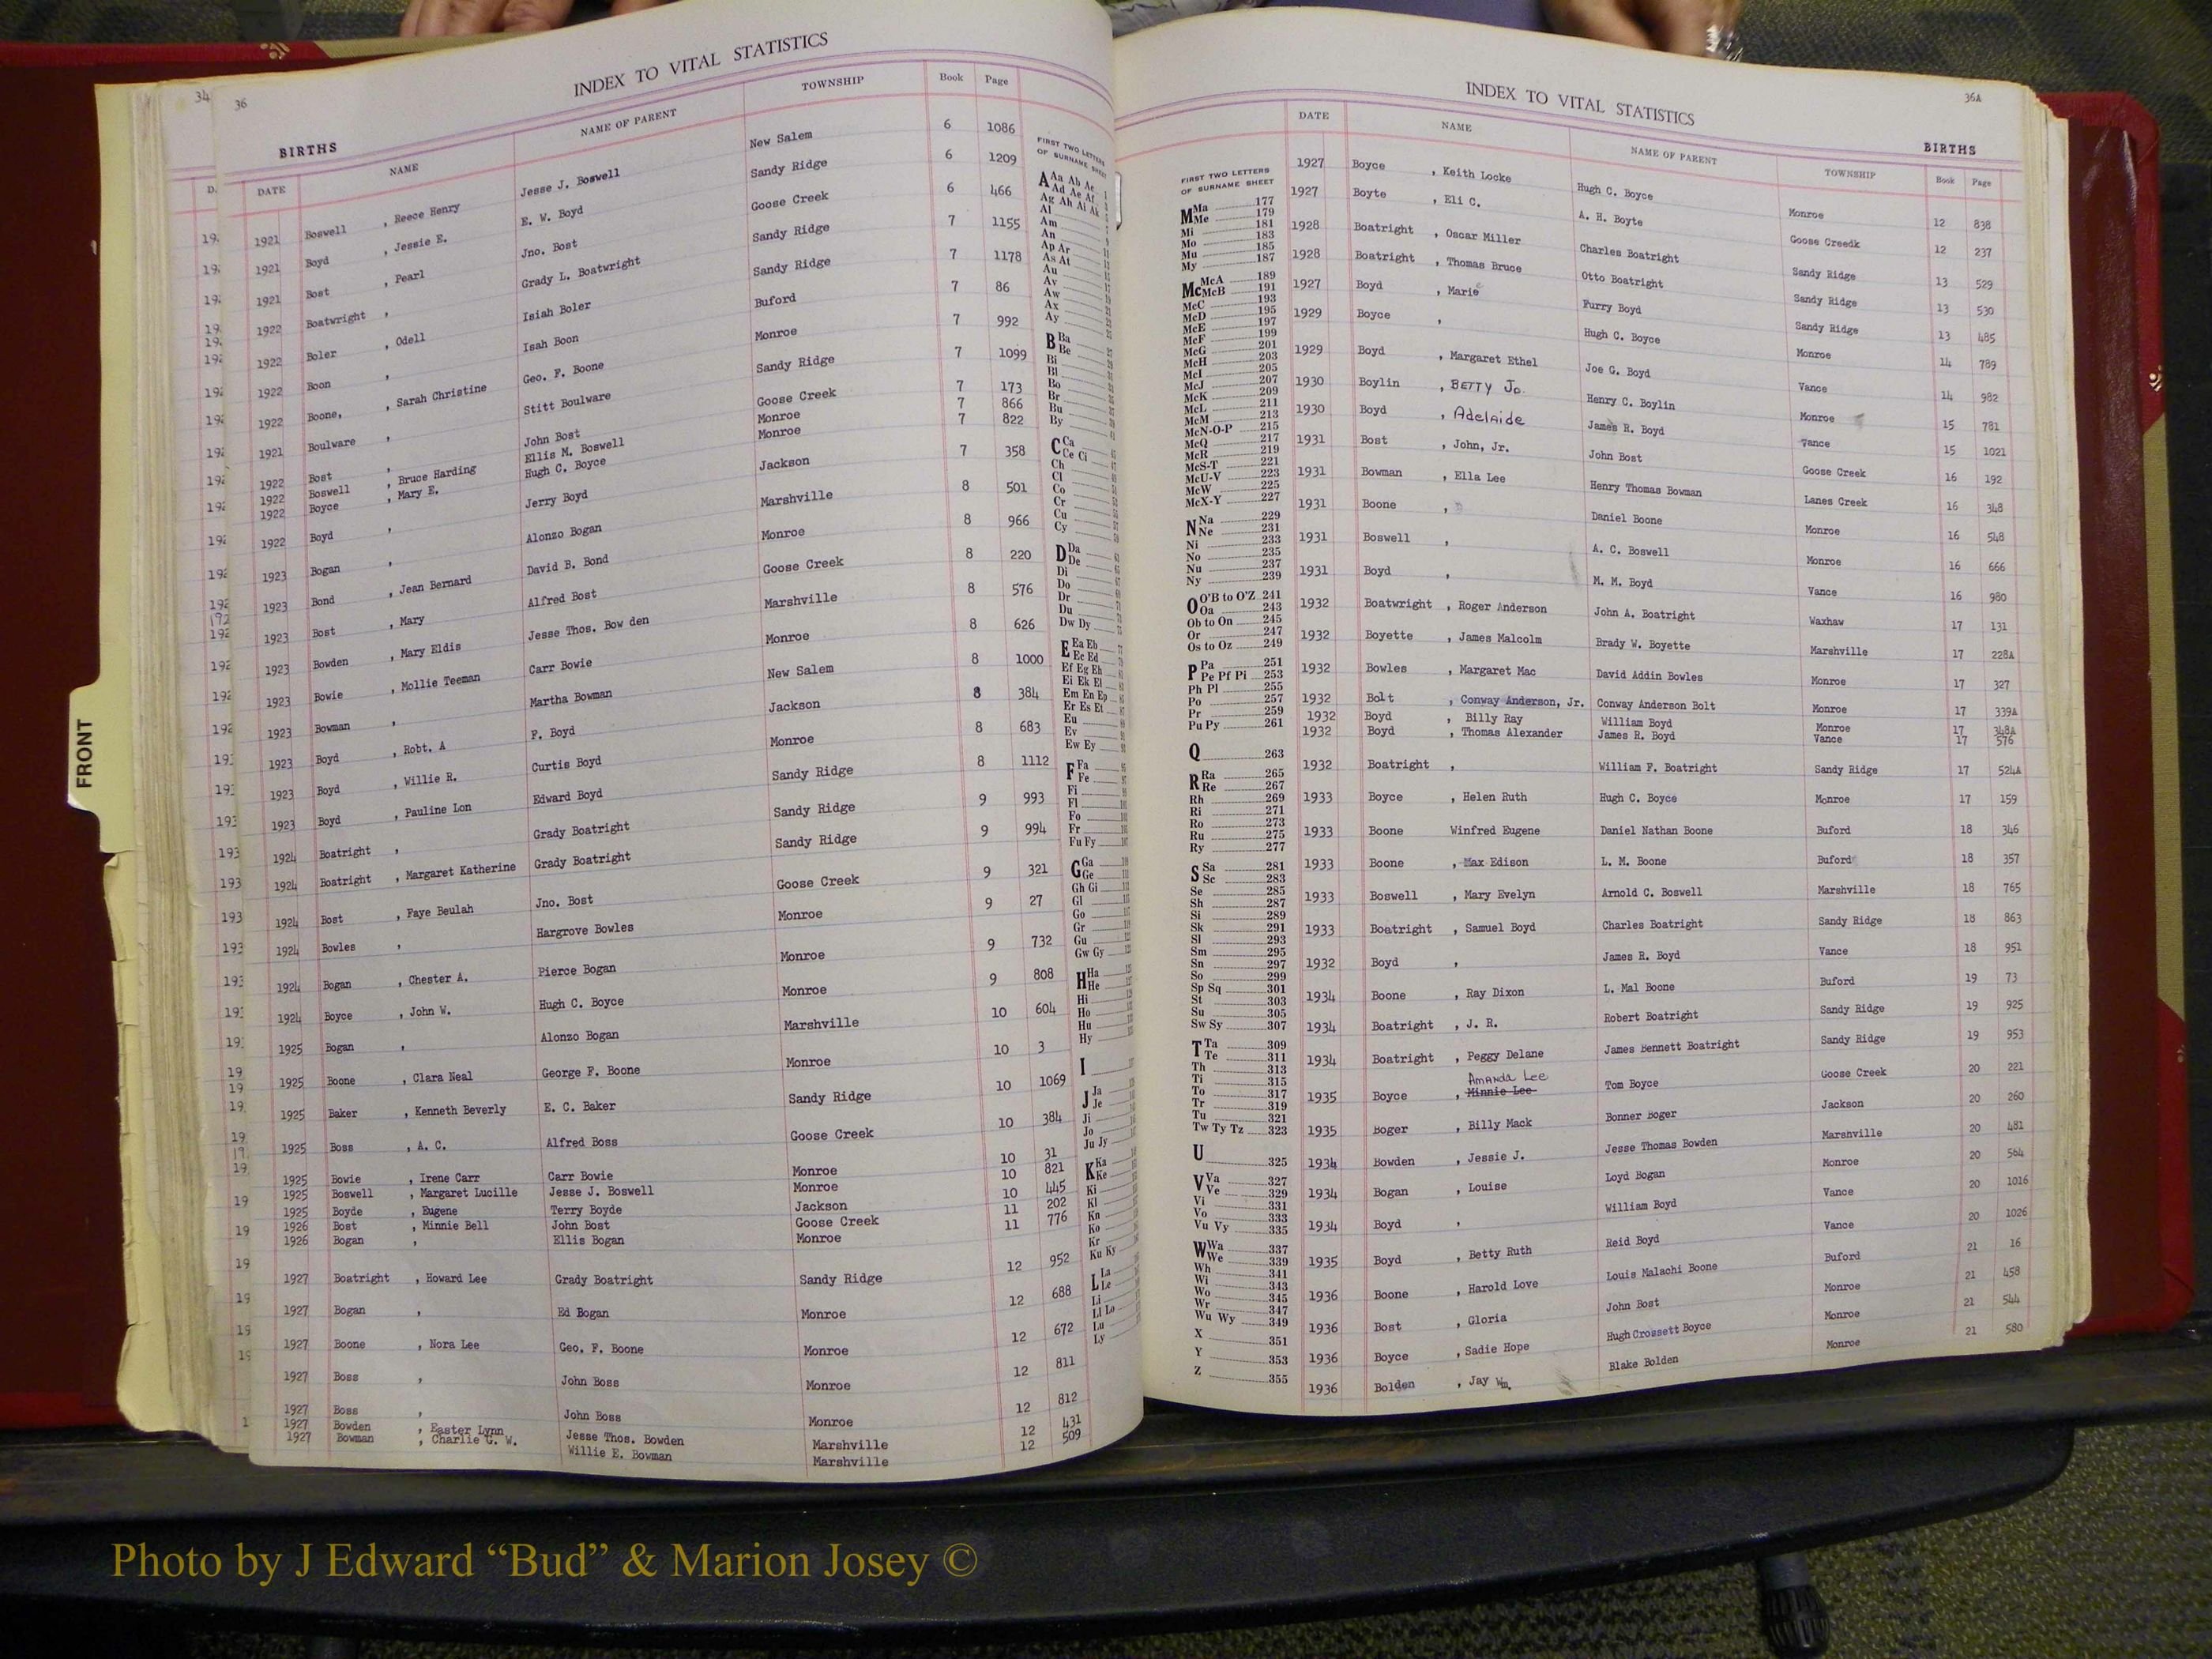 INDEX TO VITAL STATISTICS
34 36
BIRTHS
DATE NAME NAME OF PARENT TOWNSHIP Book Page
1921 Boswell , Reece Henry Jesse J. Boswell New Salem 6 1086
1921 Boyd , Jessie E. E. W. Boyd Sandy Ridge 6 1209
1921 Bost , Pearl Jno. Bost Goose Creek 6 466
1922 Boatwright , Grady L. Boatwright Sandy Ridge 7 1155
1922 Boler , Odell Isiah Boler Sandy Ridge 7 1178
1922 Boon , Isah Boon Buford 7 86
1922 Boone, , Sarah Christine Geo. F. Boone Monroe 7 992
1921 Boulware , Stitt Boulware Sandy Ridge 7 1099
1922 Bost , John Bost Goose Creek 7 173
1922 Boswell , Bruce Harding Ellis M. Boswell Monroe 7 866
1922 Boyce , Mary E. Hugh C. Boyce Monroe 7 822
1922 Boyd , Jerry Boyd Jackson 7 358
1923 Bogan , Alonzo Bogan Marshville 8 501
1923 Bond , Jean Bernard David B. Bond Monroe 8 966
1923 Bost , Mary Alfred Bost Goose Creek 8 220
1923 Bowden , Mary Eldis Jesse Thos. Bow den Marshville 8 576
1923 Bowie , Mollie Teeman Carr Bowie Monroe 8 626
1923 Bowman , Martha Bowman New Salem 8 1000
1923 Boyd , Robt. A F. Boyd Jackson 8 384
1923 Boyd , Willie R. Curtis Boyd Monroe 8 683
1923 Boyd , Pauline Lon Edward Boyd Sandy Ridge 8 1112
1924 Boatright , Grady Boatright Sandy Ridge 9 993
1924 Boatright , Margaret Katherine Grady Boatright Sandy Ridge 9 994
1924 Bost , Faye Beulah Jno. Bost Goose Creek 9 321
1924 Bowles , Hargrove Bowles Monroe 9 27
1924 Bogan , Chester A. Pierce Bogan Monroe 9 732
1924 Boyce , John W. Hugh C. Boyce Monroe 9 808
1925 Bogan , Alonzo Bogan Marshville 10 604
1925 Boone , Clara Neal George F. Boone Monroe 10 3
1925 Baker , Kenneth Beverly E. C. Baker Sandy Ridge 10 1069
1925 Boss , A. C. Alfred Boss Goose Creek 10 384
1925 Bowie , Irene Carr Carr Bowie Monroe 10 31
1925 Boswell , Margaret Lucille Jesse J. Boswell Monroe 10 821
1925 Boyde , Eugene Terry Boyde Jackson 10 445
1926 Bost , Minnie Bell John Bost Goose Creek 11 202
1926 Bogan , Ellis Bogan Monroe 11 776
1927 Boatright , Howard Lee Grady Boatright Sandy Ridge 12 952
1927 Bogan , Ed Bogan Monroe 12 688
1927 Boone , Nora Lee Geo. F. Boone Monroe 12 672
1927 Boss , John Boss Monroe 12 811
1927 Boss , John Boss Monroe 12 812
1927 Bowden , Easter Lynn Jesse Thos. Bowden Marshville 12 431
1927 Bowman , Charlie G. W. Willie E. Bowman Marshville 12 509
FIRST TWO LETTERS
OF SURNAME SHEET
A Aa Ab Ae
Ad Ae Af
Ag Ah Ai Ak
Al
Am
An
Ap Ar
As At
Au
Av
Aw
Ax
Ay
B Ba
Be
Bi
Bl
Bo
Br
Bu
By
C Ca
Ce Ci
Ch
Cl
Co
Cr
Cu
Cy
D Da
De
Di
Do
Dr
Du
Dw Dy
E Ea Eb
Ec Ed
Ef Eg Eh
Ei Ek El
Em En Ep
Er Es Et
Eu
Ev
Ew Ey
F Fa
Fe
Fi
Fl
Fo
Fr
Fu Fy
G Ga
Ge
Gh Gi
Gl
Go
Gr
Gu
Gw Gy
H Ha
He
Hi
Ho
Hu
Hy
I
J Ja
Je
Ji
Jo
Ju Jy
K Ka
Ke
Ki
Kl
Kn
Ko
Kr
Ku Ky
L La
Le
Li
Ll Lo
Lu
Ly
FRONT
INDEX TO VITAL STATISTICS
36A
BIRTHS
FIRST TWO LETTERS
OF SURNAME SHEET
M Ma 177
Me 179
Mi 181
Mo 183
Mu 185
My 187
Mc McA 189
McB 191
McC 193
McD 195
McE 197
McF 199
McG 201
McH 203
McI 205
McJ 207
McK 209
McL 211
McM 213
McN-O-P 215
McQ 217
McR 219
McS-T 221
McU-V 223
McW 225
McX-Y 227
N Na 229
Ne 231
Ni 233
No 235
Nu 237
Ny 239
O O'B to O'Z 241
Oa 243
Ob to On 245
Or 247
Os to Oz 249
P Pa 251
Pe Pf Pi 253
Ph Pl 255
Po 257
Pr 259
Pu Py 261
Q 263
R Ra 265
Re 267
Rh 269
Ri 271
Ro 273
Ru 275
Ry 277
S Sa 281
Sc 283
Se 285
Sh 287
Si 289
Sk 291
Sl 293
Sm 295
Sn 297
So 299
Sp Sq 301
St 303
Su 305
Sw Sy 307
T Ta 309
Te 311
Th 313
Ti 315
To 317
Tr 319
Tu 321
Tw Ty Tz 323
U 325
V Va 327
Ve 329
Vi 331
Vo 333
Vu Vy 335
W Wa 337
We 339
Wh 341
Wi 343
Wo 345
Wr 347
Wu Wy 349
X 351
Y 353
Z 355
DATE NAME NAME OF PARENT TOWNSHIP Book Page
1927 Boyce , Keith Locke Hugh C. Boyce Monroe 12 838
1927 Boyte , Eli C. A. H. Boyte Goose Creedk 12 237
1928 Boatright , Oscar Miller Charles Boatright Sandy Ridge 13 529
1928 Boatright , Thomas Bruce Otto Boatright Sandy Ridge 13 530
1927 Boyd , Marie Furry Boyd Sandy Ridge 13 485
1929 Boyce , Hugh C. Boyce Monroe 14 789
1929 Boyd , Margaret Ethel Joe G. Boyd Vance 14 982
1930 Boylin , BETTY Jo Henry C. Boylin Monroe 15 781
1930 Boyd , Adelaide James R. Boyd Vance 15 1021
1931 Bost , John, Jr. John Bost Goose Creek 16 192
1931 Bowman , Ella Lee Henry Thomas Bowman Lanes Creek 16 348
1931 Boone , Daniel Boone Monroe 16 548
1931 Boswell , A. C. Boswell Monroe 16 666
1931 Boyd , M. M. Boyd Vance 16 980
1932 Boatwright , Roger Anderson John A. Boatright Waxhaw 17 131
1932 Boyette , James Malcolm Brady W. Boyette Marshville 17 228A
1932 Bowles , Margaret Mac David Addin Bowles Monroe 17 327
1932 Bolt , Conway Anderson, Jr. Conway Anderson Bolt Monroe 17 339A
1932 Boyd , Billy Ray William Boyd Monroe 17 348A
1932 Boyd , Thomas Alexander James R. Boyd Vance 17 576
1932 Boatright , William F. Boatright Sandy Ridge 17 524A
1933 Boyce , Helen Ruth Hugh C. Boyce Monroe 17 159
1933 Boone Winfred Eugene Daniel Nathan Boone Buford 18 346
1933 Boone , Max Edison L. M. Boone Buford 18 357
1933 Boswell , Mary Evelyn Arnold C. Boswell Marshville 18 765
1933 Boatright , Samuel Boyd Charles Boatright Sandy Ridge 18 863
1932 Boyd , James R. Boyd Vance 18 951
1934 Boone , Ray Dixon L. Mal Boone Buford 19 73
1934 Boatright , J. R. Robert Boatright Sandy Ridge 19 925
1934 Boatright , Peggy Delane James Bennett Boatright Sandy Ridge 19 953
Amanda Lee
1935 Boyce , Minnie Lee Tom Boyce Goose Creek 20 221
1935 Boger , Billy Mack Bonner Boger Jackson 20 260
1934 Bowden , Jessie J. Jesse Thomas Bowden Marshville 20 481
1934 Bogan , Louise Loyd Bogan Monroe 20 564
1934 Boyd , William Boyd Vance 20 1016
1935 Boyd , Betty Ruth Reid Boyd Vance 20 1026
1936 Boone , Harold Love Louis Malachi Boone Buford 21 16
1936 Bost , Gloria John Bost Monroe 21 458
1936 Boyce , Sadie Hope Hugh Crossett Boyce Monroe 21 544
1936 Bolden , Jay Wm. Blake Bolden Monroe 21 580
Photo by J Edward “Bud” & Marion Josey ©